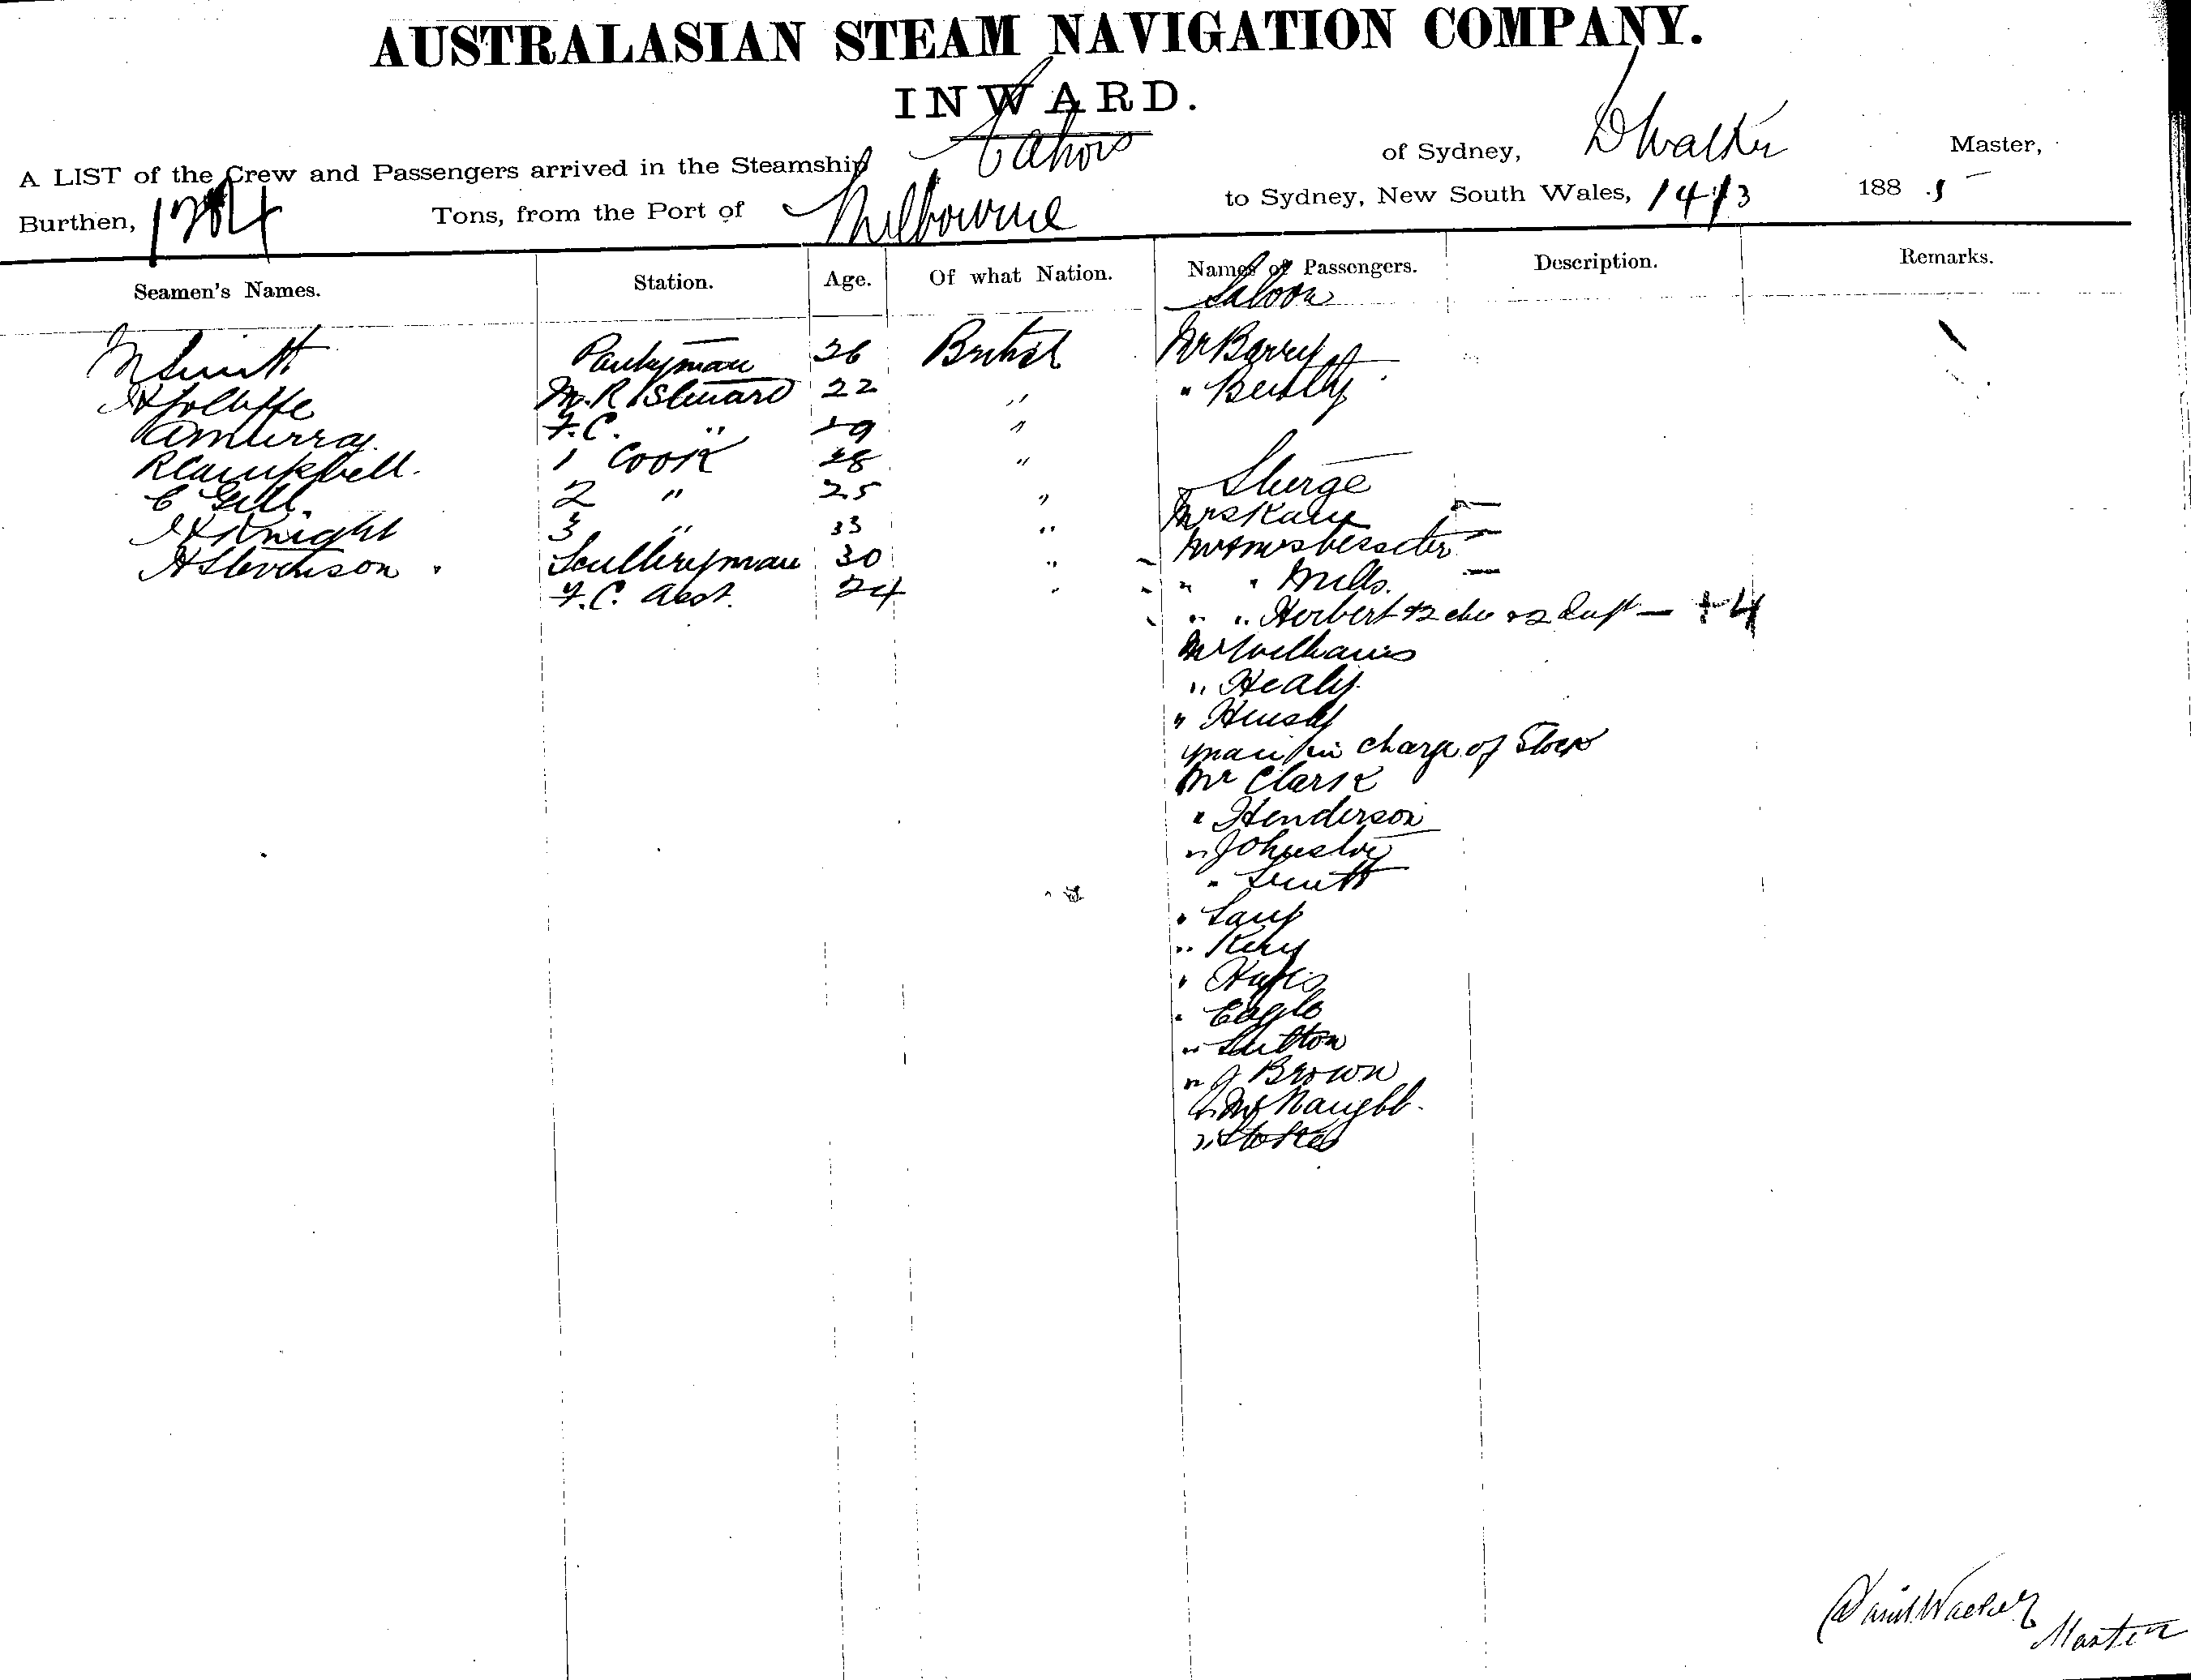 AUSTRALASIAN STEAM NAVIGATION COMPANY.
INWARD.
A LIST of the Crew and Passengers arrived in the Steamship Cahors of Sydney, D Walker Master,
Burthen, Tons, from the Port of Melbourne to Sydney, New South Wales, 14/3 188 5
Seamen's Names. Station. Age. Of what Nation. Names of Passengers. Description. Remarks.
Saloon
Smith Pantryman 26 British Mr Barry
M.R Steward 22 " "
A Murray. F.C. " 19 "
R Campbell. 1 Cook 28 "
C Gill. 2 " 25 " Sterge
Knight 3 " 33 " Mrs
H Stevenson Sculleryman 30 "
F.C. Asst. 24 " " " Mills.
" " Herbert + 2 chn + 2 Inft — + 4
Mr Williams
" Healy.
"
man in charge of Stock
Mr Clark
" Henderson
" Johnston
" Smith
" Lang
" King
"
" Eagle
" Sutton
" J Brown
" McNaught.
" Stokes
Daniel Walker
Master